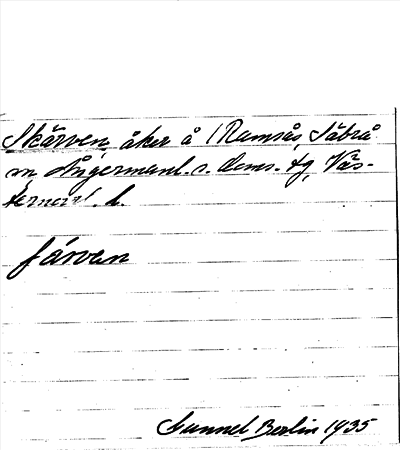 Skärven, åker å Ramsås, Säbrå
sn, Ångermanl. s. doms. tg, Väs-
ternorrl. l.
färven
Gunnel Berlin 1935